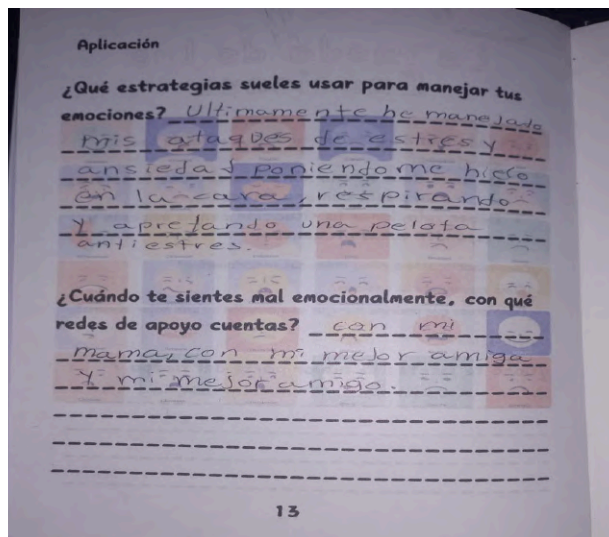 Aplicación
¿Qué estrategias sueles usar para manejar tus
emociones? Ultimamente he manejado
mis ataques de estres y
ansiedad poniendome hielo
en la cara, respirando
y apretando una pelota
antiestres.
¿Cuándo te sientes mal emocionalmente, con qué
redes de apoyo cuentas? con mi
mama, con mi mejor amiga
y mi mejor amigo.
13